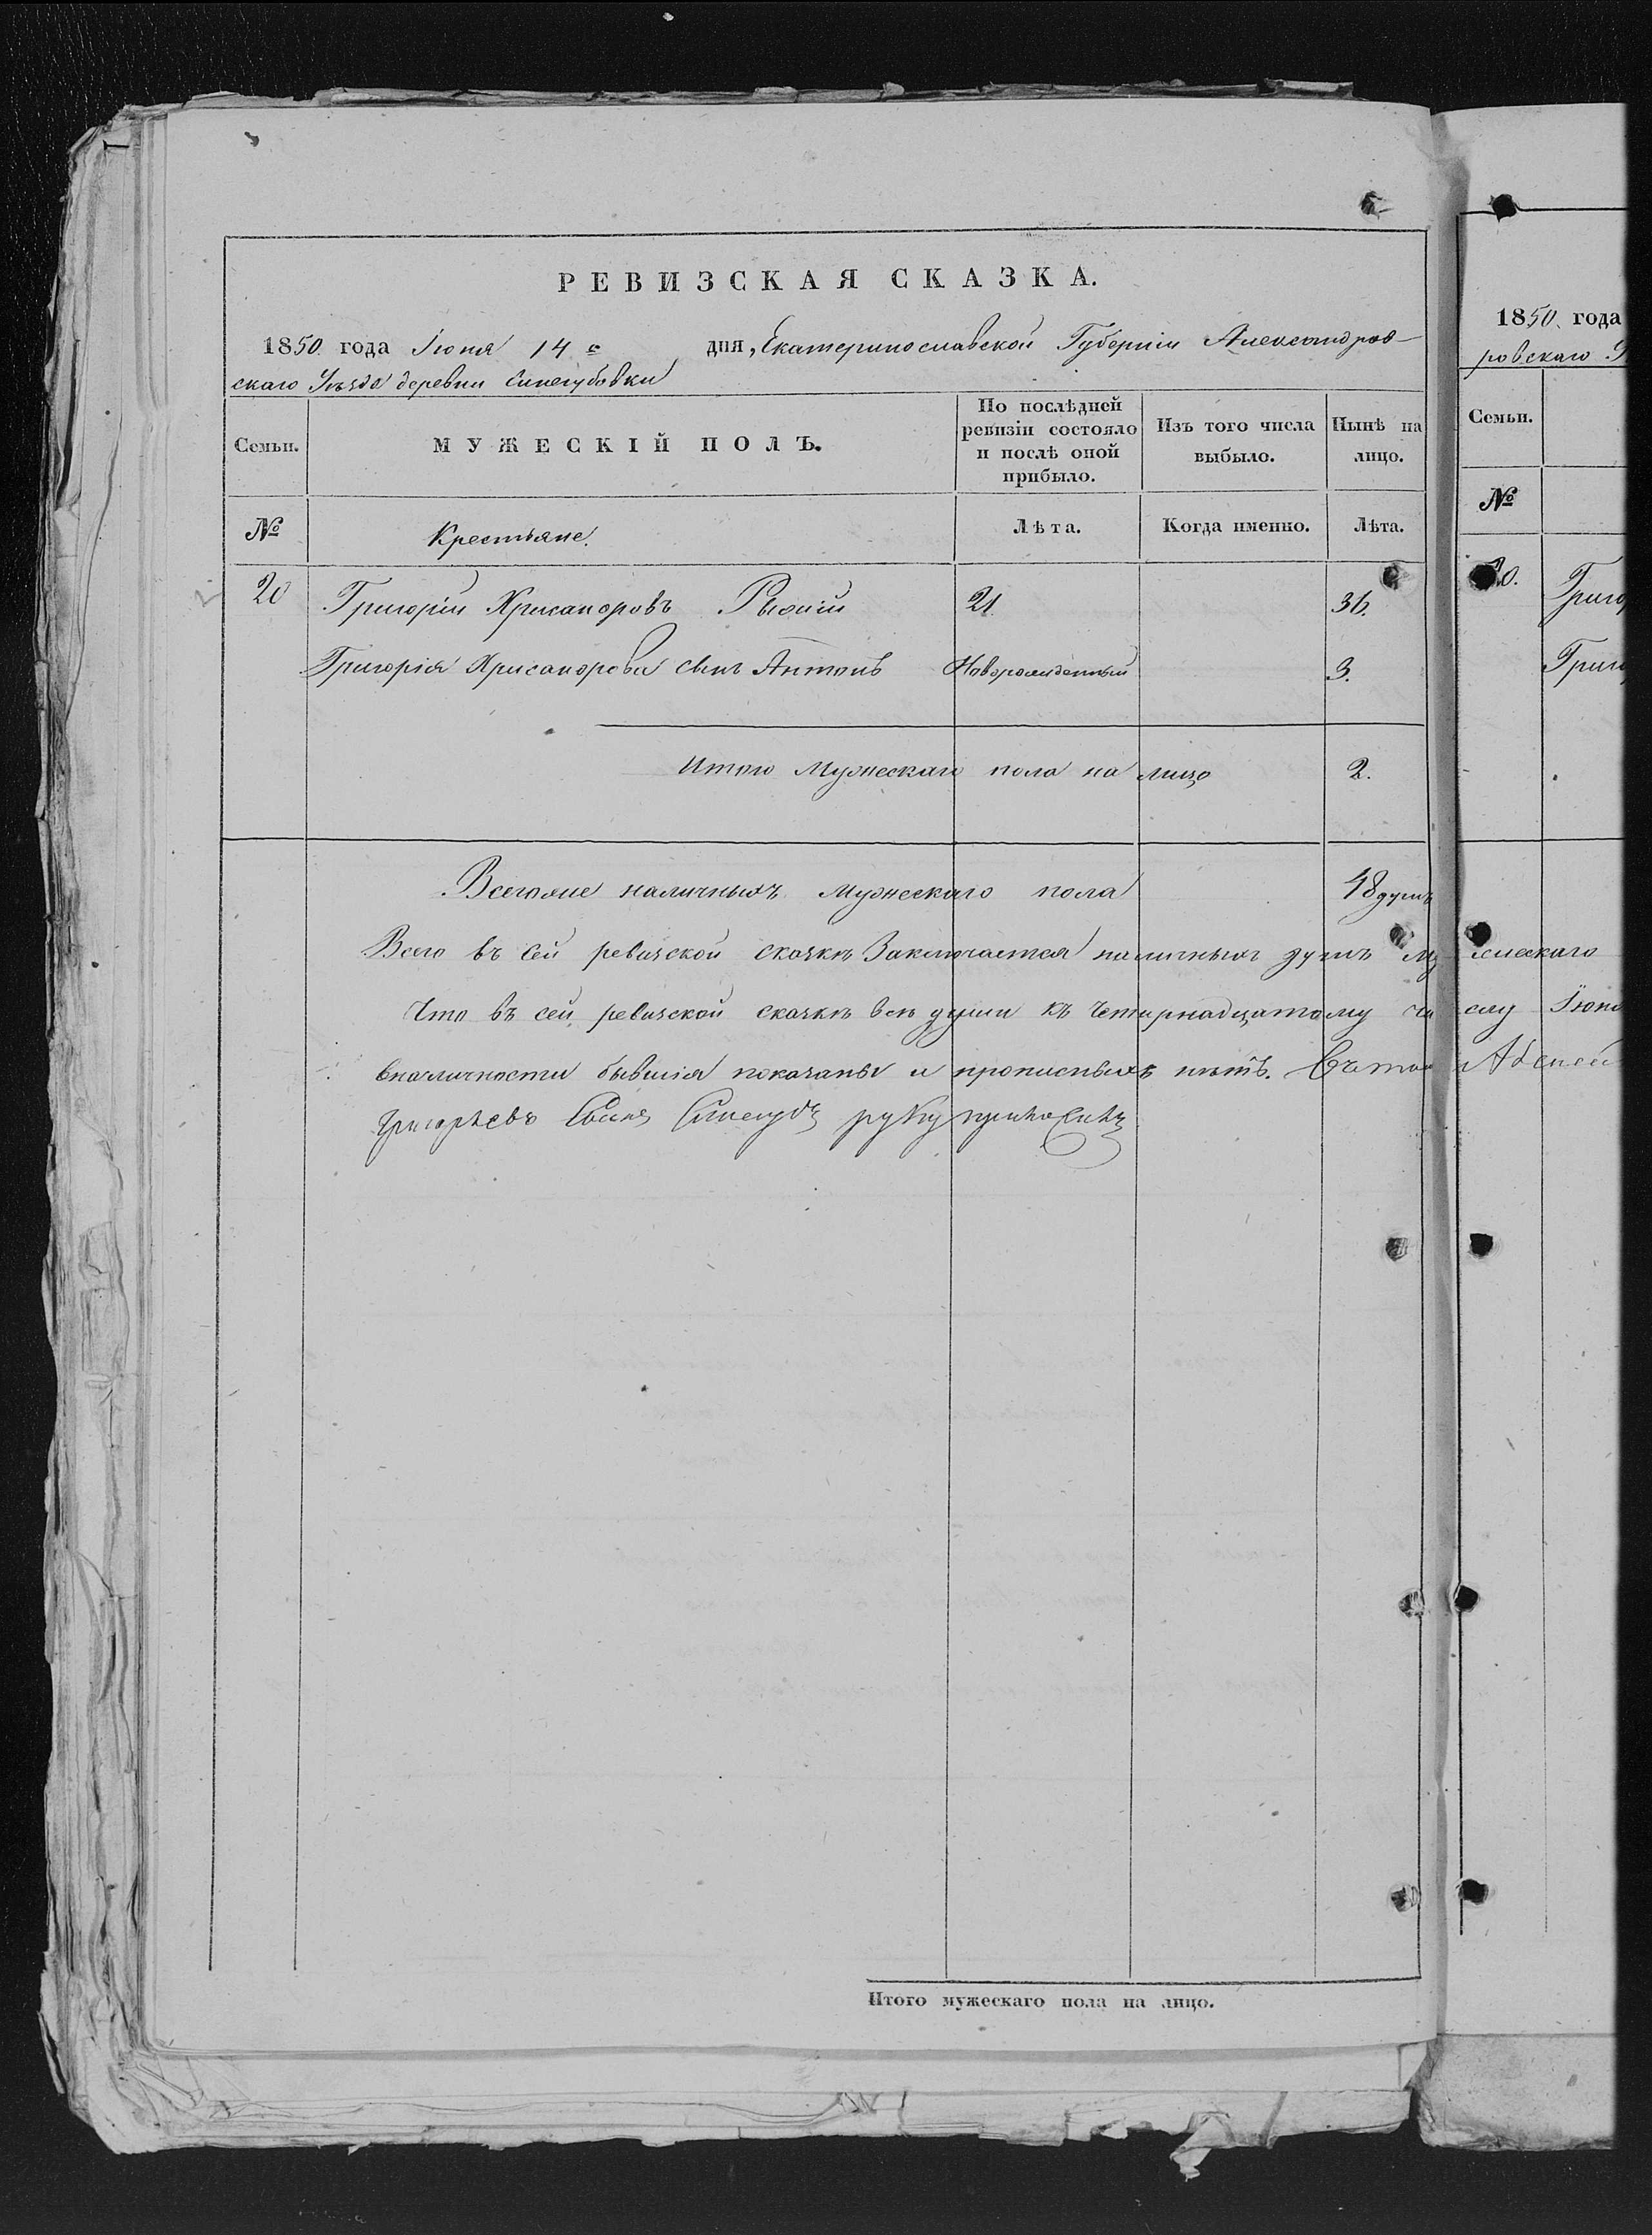 РЕВИЗСКАЯ СКАЗКА.
1850 года Іюня 14 дня, Екатеринославской Губерніи Александров-
скаго Уѣзда деревни Синегубовки
Семьи. МУЖЕСКІЙ ПОЛЪ. По послѣдней ревизіи состояло и послѣ оной прибыло. Изъ того числа выбыло. Нынѣ на лицо.
№ Крестьяне. Лѣта. Когда именно. Лѣта.
20 Григорій Хрисанфовъ Рыжій 21. 36.
Григорія Хрисанфова сынъ Антонъ Новорожденный 3.
Итого Мужескаго пола на лицо 2.
Всего же наличныхъ мужескаго пола 48 душъ
Всего въ сей ревизской сказкѣ Заключается наличныхъ душъ мужескаго
Что въ сей ревизской сказкѣ всѣ души къ четырнадцатому числу Іюня
вналичности бывшія показаны и прописныхъ нѣтъ. Въ том
Григорьевъ Сынъ Синегубъ руку приложилъ
Итого мужескаго пола на лицо.
1850 года
ровскаго
Семьи.
№
20. Григо
Григо